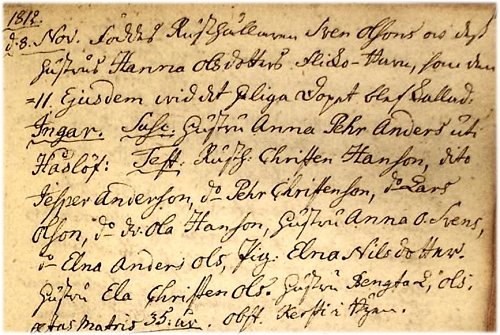 1812.
d. 8. Nov. föddes Rusthållaren Sven Olsons och dess
hustrus Hanna Olsdotters flicko-barn, som den
11. Ejusdem wid det heliga Dopet blef kallad:
Ingar. Susc: hustru Anna Pehr Anders uti
Hadlöf: Test: Rusth: Christen Hanson, dito
Jesper Anderson, do Pehr Christenson, do Lars
Olson, do dr. Ola Hanson, hustru Anna O. Svens,
do Elna Anders Ols, Pig: Elna Nilsdotter.
hustru Ela Christen Ols. hustru Bengta L: Ols.
ætas Matris 35. år. obst. Kersti i